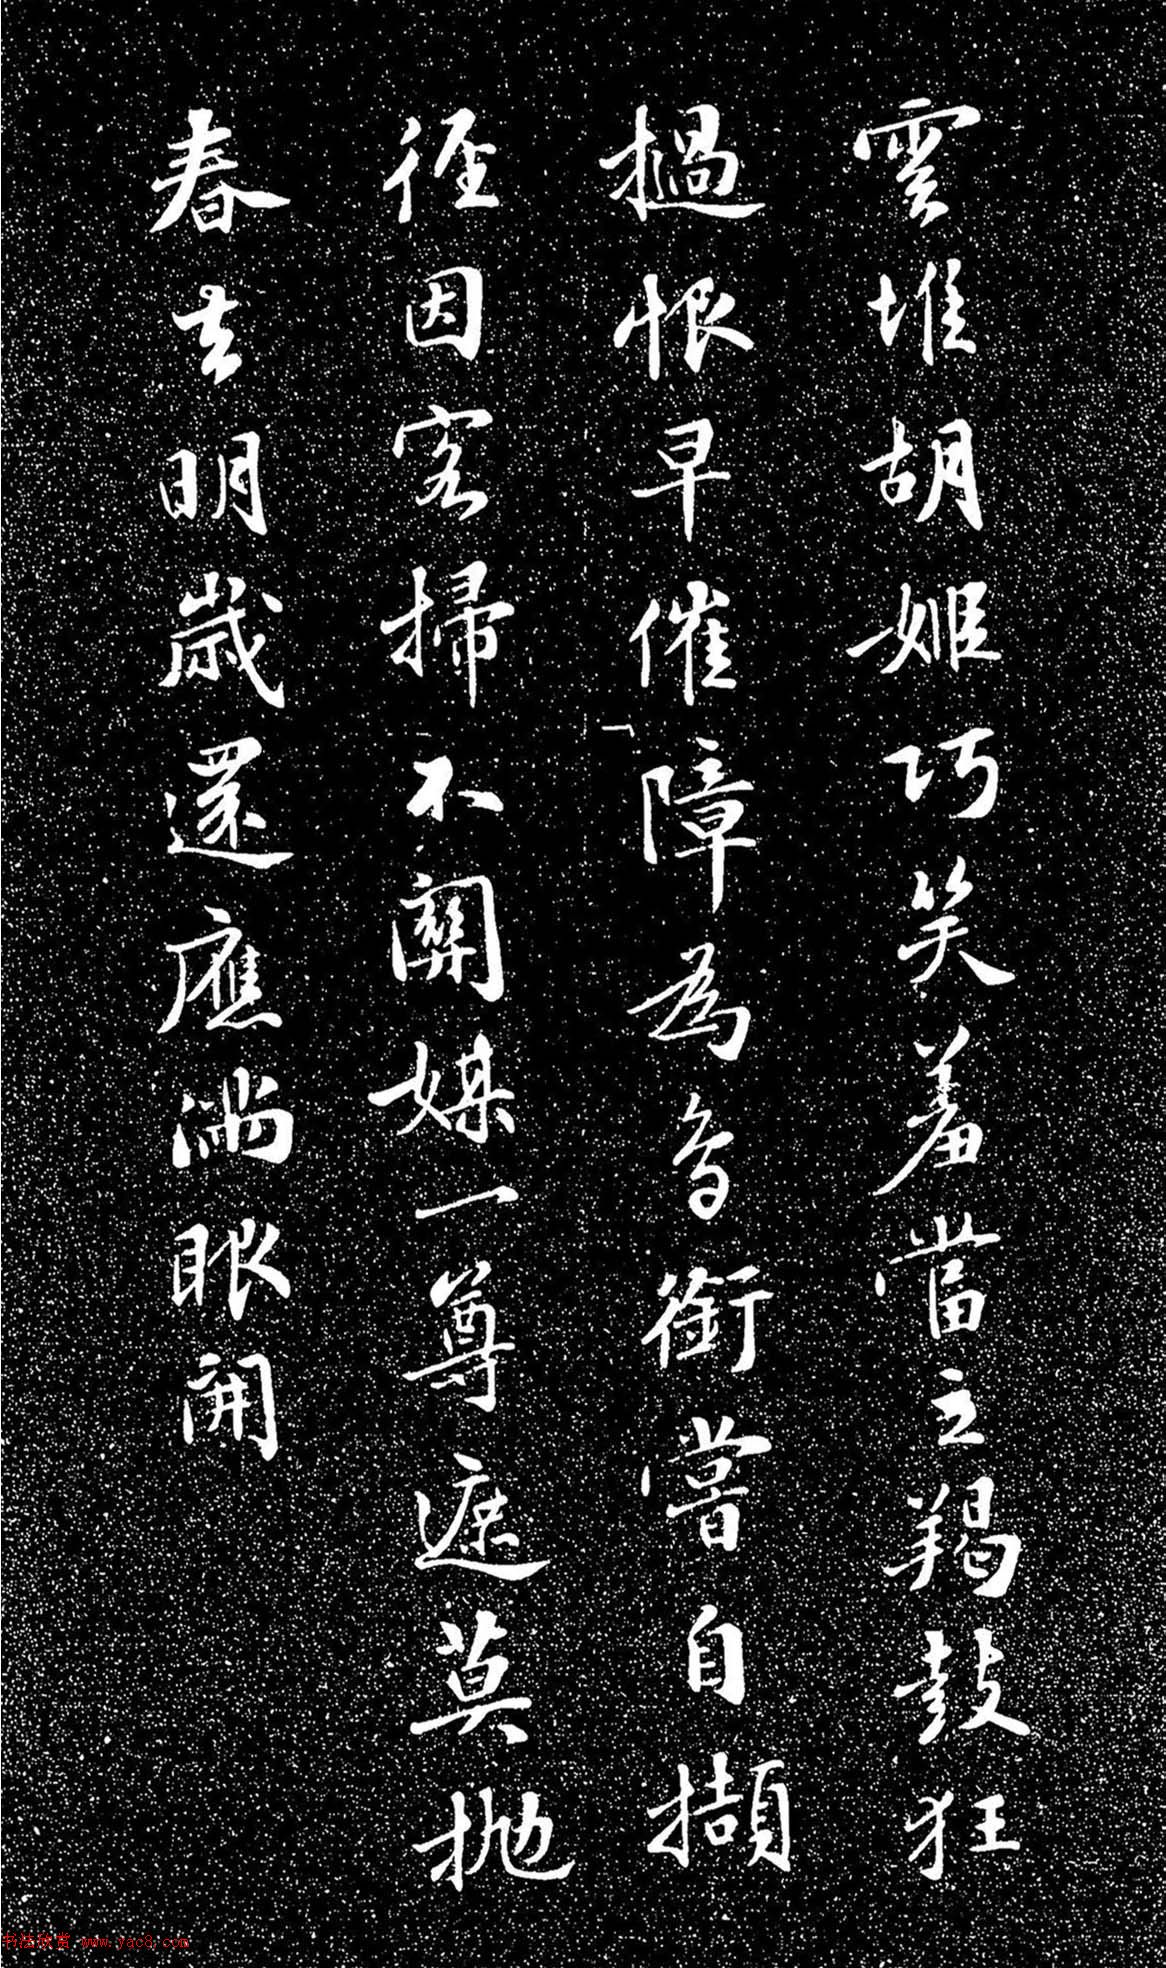 雲堆胡姬巧笑羞當立羯鼓狂
撾恨早催障為鳥銜嘗自擷
徑因客掃不關媒一尊遮莫拋
春去明歲還應滿眼開
书法欣赏 www.yac8.com